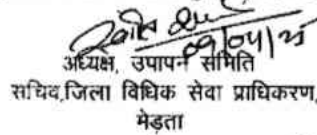 09/04/25
अध्यक्ष, उपापन समिति
सचिव,जिला विधिक सेवा प्राधिकरण,
मेड़ता